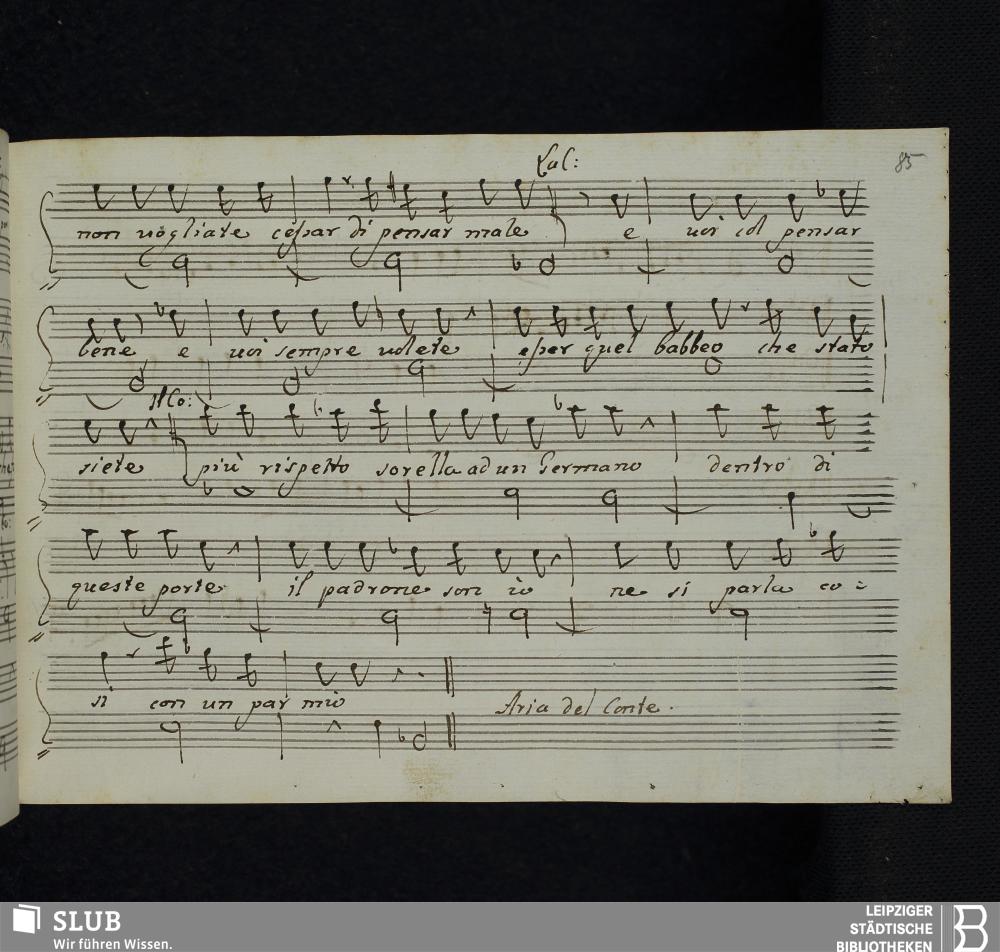 85
Lal:
non vogliate cessar di pensar male e voi col pensar
bene e voi sempre volete e per quel babbeo che stato
Il Co:
siete più rispetto sorella ad un Germano dentro di
queste porte il padrone son io ne si parla co=
si con un par mio Aria del Conte.
SLUB
Wir führen Wissen.
LEIPZIGER
STÄDTISCHE
BIBLIOTHEKEN